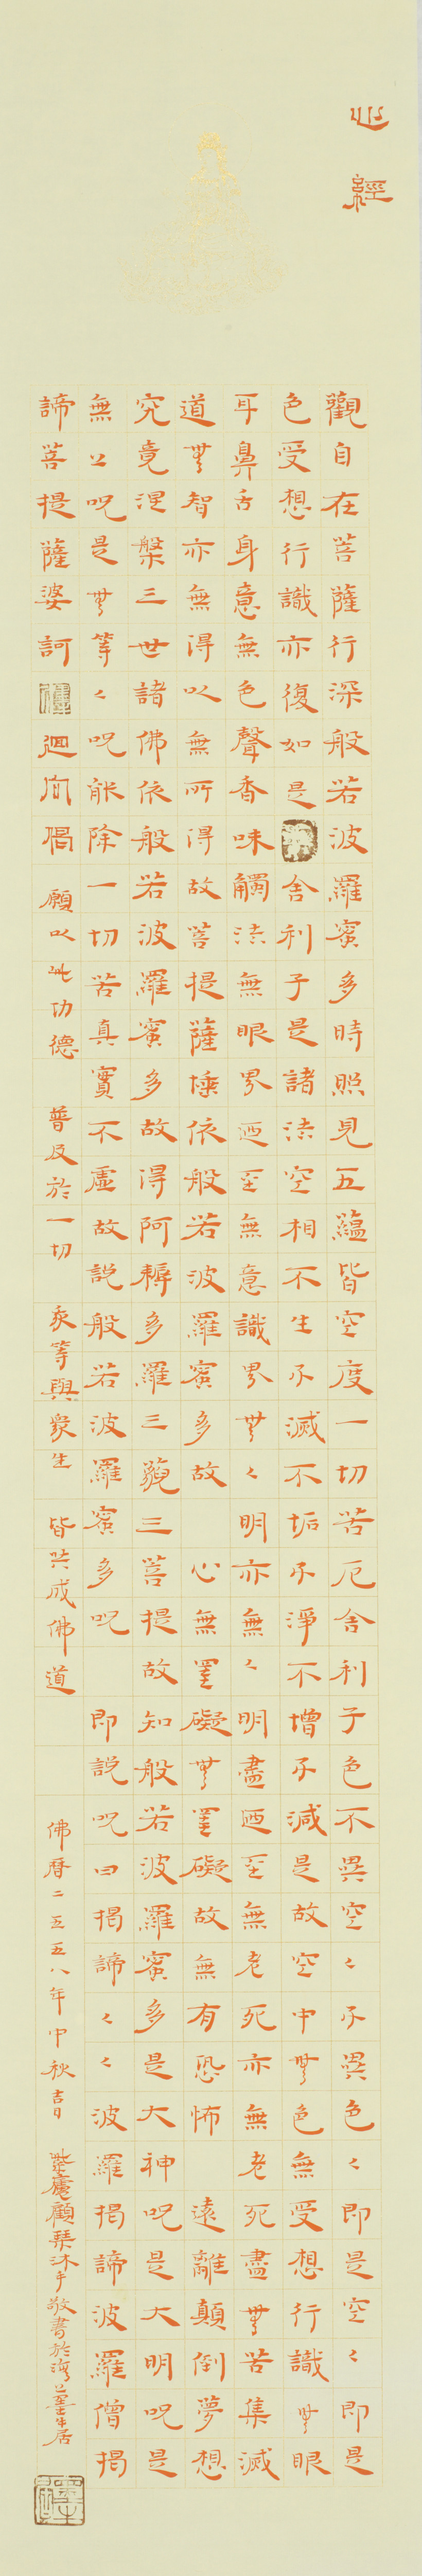 心經
觀自在菩薩行深般若波羅蜜多時照見五蘊皆空度一切苦厄舍利子色不異空々不異色々即是空々即是
色受想行識亦復如是舍利子是諸法空相不生不滅不垢不淨不增不減是故空中無色無受想行識無眼
耳鼻舌身意無色聲香味觸法無眼界迺至無意識界無々明亦無々明盡迺至無老死亦無老死盡無苦集滅
道無智亦無得以無所得故菩提薩埵依般若波羅蜜多故心無罣礙無罣礙故無有恐怖遠離顛倒夢想
究竟涅槃三世諸佛依般若波羅蜜多故得阿耨多羅三藐三菩提故知般若波羅蜜多是大神呪是大明呪是
無上呪是無等々呪能除一切苦真實不虛故說般若波羅蜜多呪即說呪曰揭諦々々波羅揭諦波羅僧揭
諦菩提薩婆訶 迴向偈 願以此功德 普及於一切 我等與眾生 皆共成佛道 佛曆二五五八年中秋吉日 顧琹沐手敬書於海上墨牛居